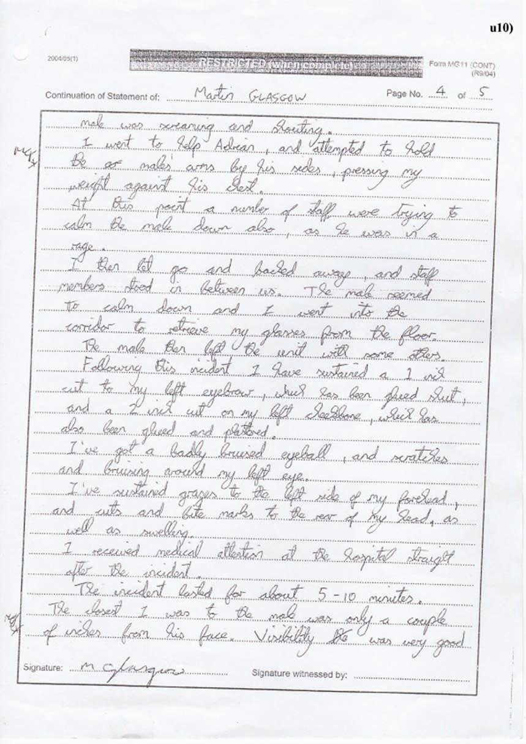 u10)
2004/05(1)
RESTRICTED (when complete)
Form MG11 (CONT)
(R9/04)
Continuation of Statement of: Martin GLASGOW
Page No. 4 of 5
male was screaming and shouting.
I went to help Adrian, and attempted to hold
the or males arms by his sides, pressing my
weight against his chest.
At this point a number of staff were trying to
calm the male down also, as he was in a
rage.
I then let go and backed away, and staff
members stood in between us. The male seemed
to calm down and I went into the
corridor to retrieve my glasses from the floor.
The male then left the unit with some others.
Following this incident I have sustained a 1 inch
cut to my left eyebrow, which has been glued shut,
and a 2 inch cut on my left cheekbone, which has
also been glued and plastered.
I've got a badly bruised eyeball, and scratches
and bruising around my left eye.
I've sustained grazes to the left side of my forehead,
and cuts and bite marks to the rear of my head, as
well as swelling.
I received medical attention at the hospital straight
after the incident.
The incident lasted for about 5-10 minutes.
The closest I was to the male was only a couple
of inches from his face. Visibility was very good
Signature: M Glasgow
Signature witnessed by: